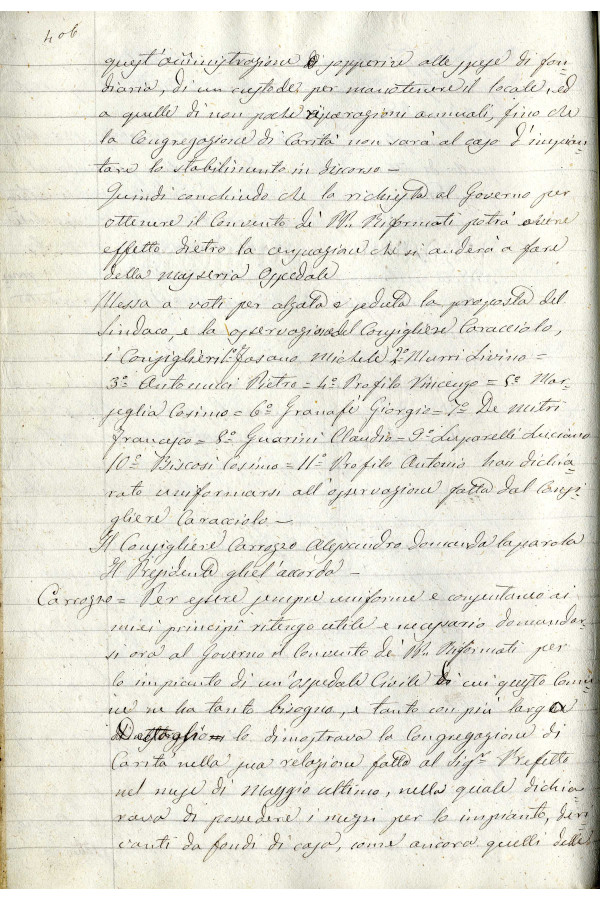 406
quest'amministrazione di sopperire alle spese di fon=
diaria, di un custode per manotenere il locale, ed
a quelle di non poche riparazioni annuali, fino che
la Congregazione di Carità non sarà al caso d'impian=
tare lo stabilimento in discorso —
Quindi conchiudo che la richiesta al Governo per
ottenere il Convento de' PP. Riformati potrà avere
effetto dietro la censuazione che si anderà a fare
della masseria Ospedale
Messa a voti per alzata e seduta la proposta del
Sindaco, e la osservazione del Consigliere Caracciolo,
i Consiglieri 1º Fasano Michele 2º Murri Livino =
3º Antonucci Pietro = 4º Profilo Vincenzo = 5º Mar=
seglia Cosimo = 6º Granafi Giorgio = 7º De Mitri
Francesco = 8º Guarini Claudio = 9º Lisparelli Luciano
10º Biscosi Cosimo = 11º Profilo Antonio han dichia=
rato uniformarsi all'osservazione fatta dal Consi=
gliere Caracciolo —
Il Consigliere Carrozzo Alessandro domanda la parola
Il Presidente gliel'accorda —
Carrozzo = Per essere sempre uniforme e consentaneo ai
miei principî ritengo utile e necessario domandar=
si ora al Governo il Convento de' PP. Riformati per
lo impianto di un'ospedale Civile di cui questo Comu=
ne ne ha tanto bisogno, e tanto con più largo
Dettaglio lo dimostrava la Congregazione di
Carità nella sua relazione fatta al Sigr. Prefetto
nel mese di Maggio ultimo, nella quale dichia=
rava di possedere i mezzi per lo impianto, deri
vanti da fondi di cassa, come ancora quelli delle